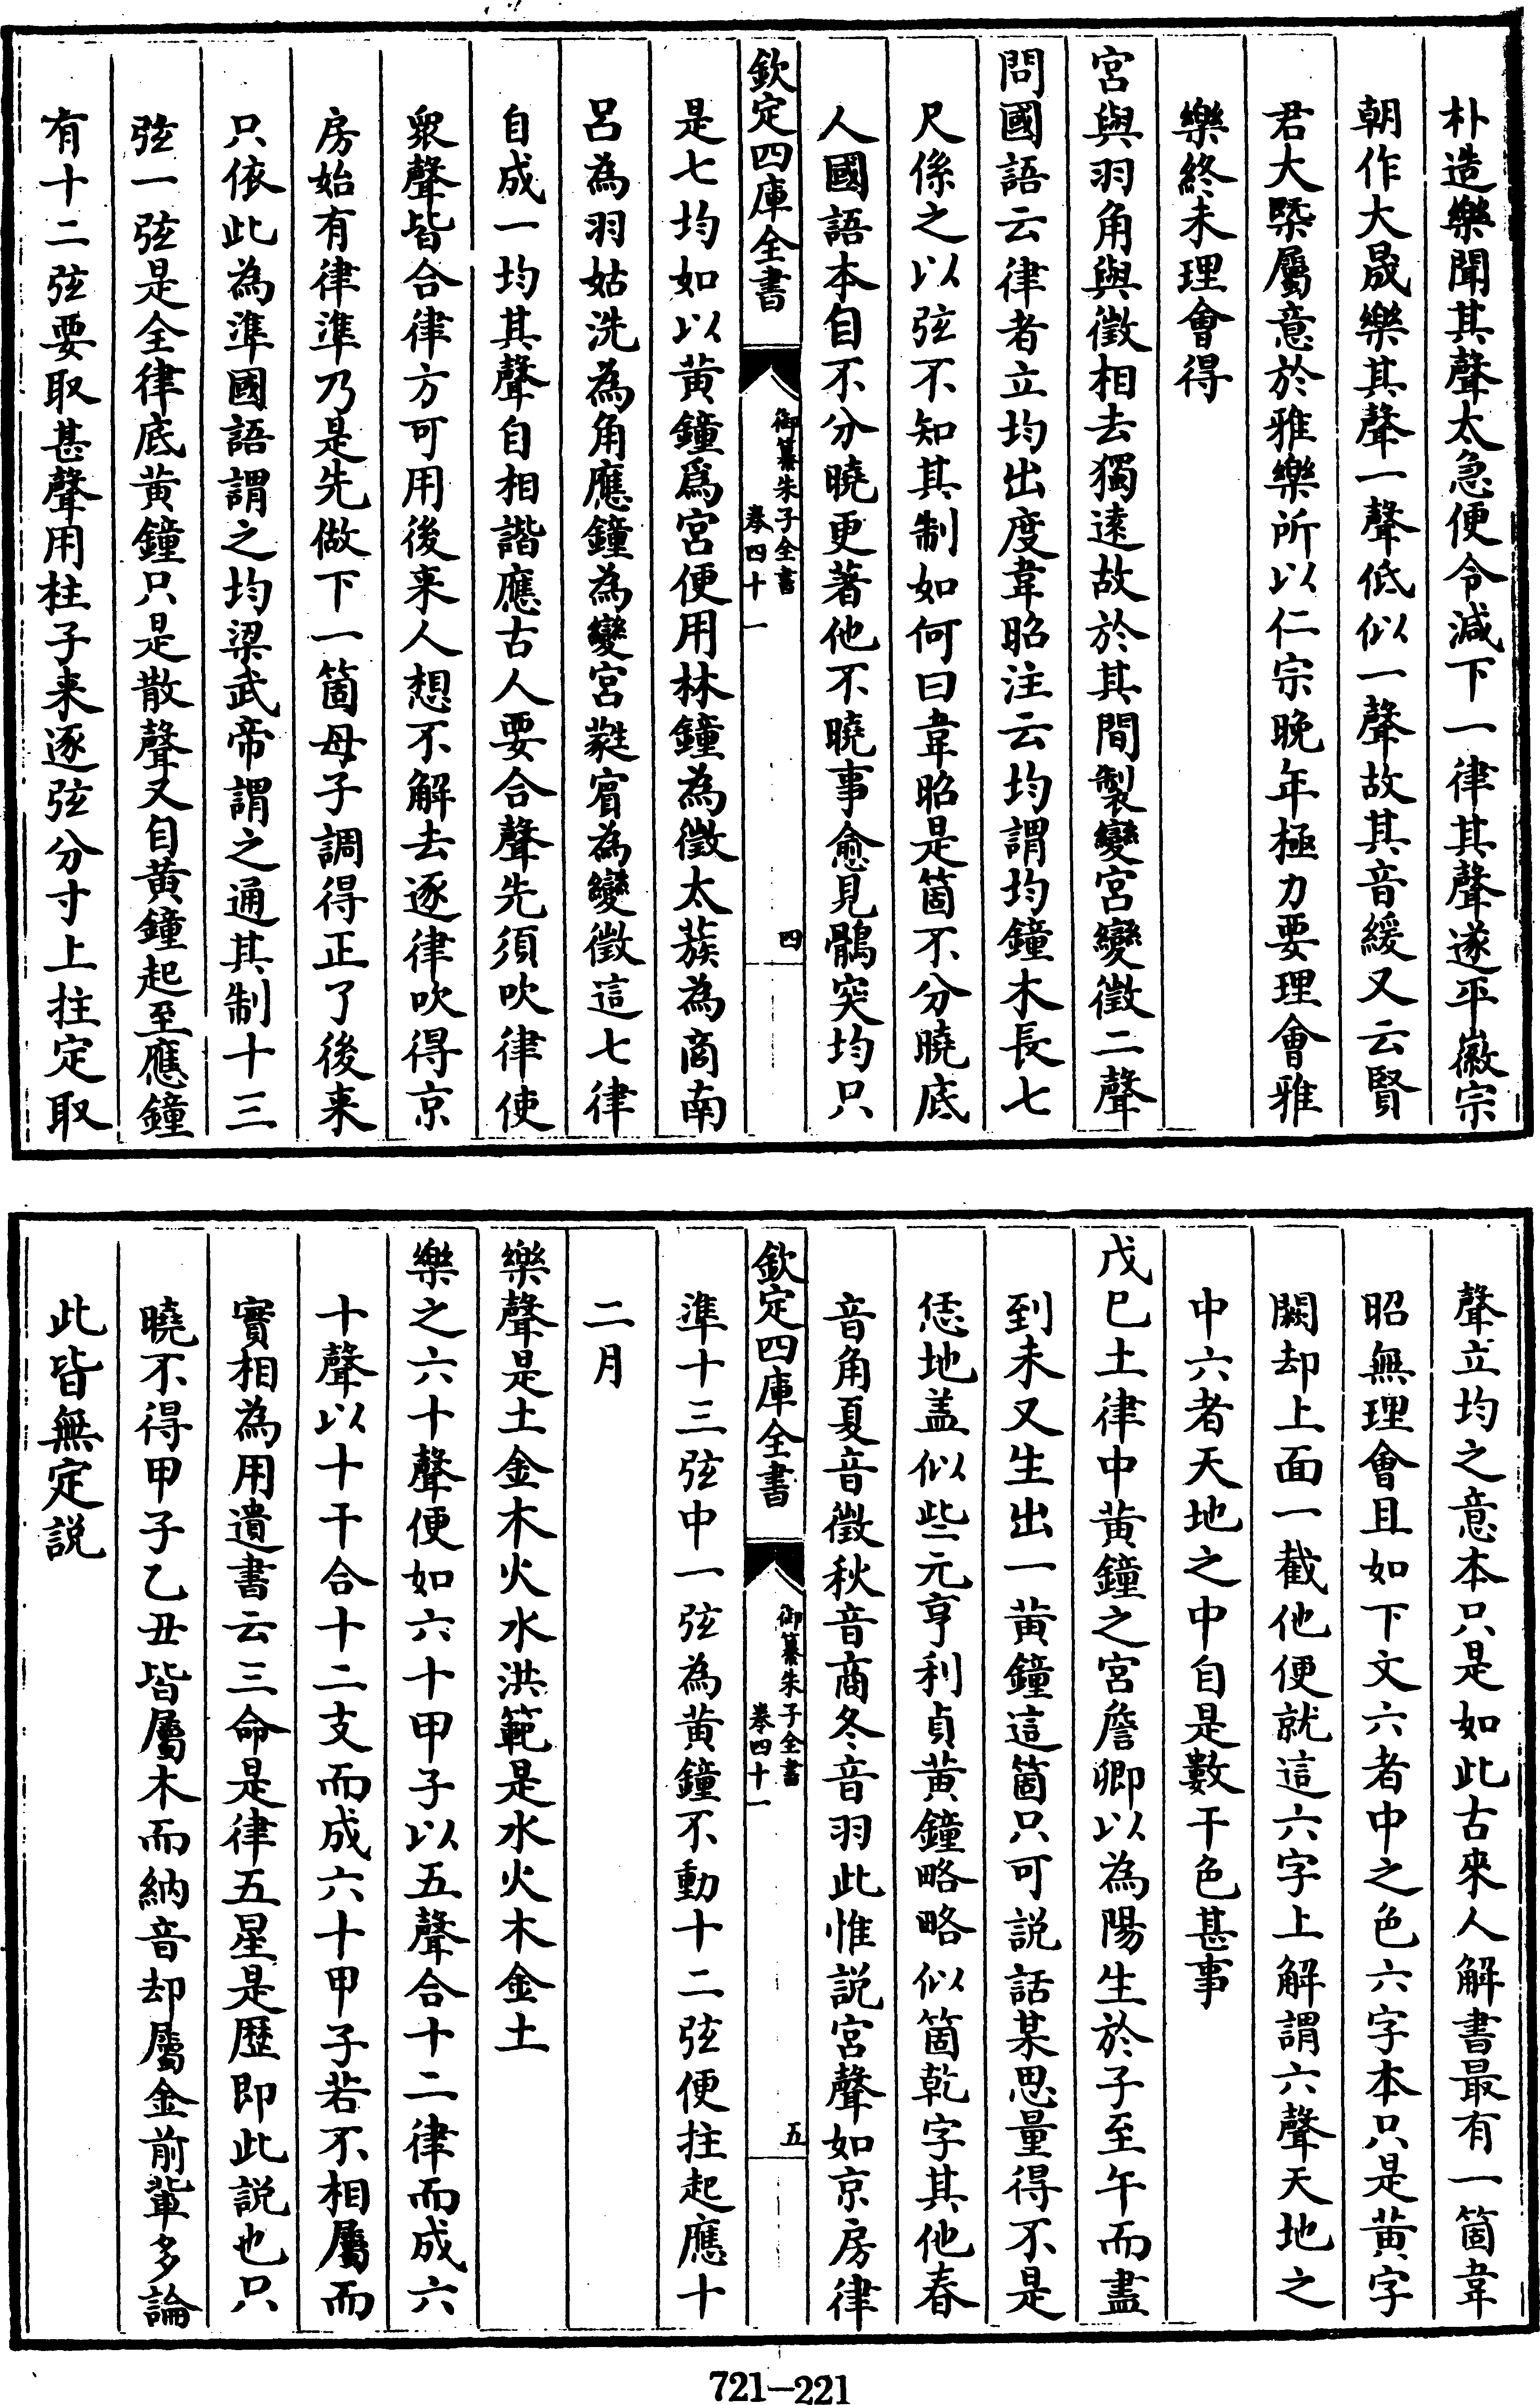 朴造樂聞其聲太急便令減下一律其聲遂平徽宗
朝作大晟樂其聲一聲低似一聲故其音緩又云賢
君大槩屬意於雅樂所以仁宗晚年極力要理會雅
樂終未理會得
宮與羽角與徵相去獨遠故於其間製變宮變徵二聲
問國語云律者立均出度韋昭注云均謂均鐘木長七
尺係之以弦不知其制如何曰韋昭是箇不分曉底
人國語本自不分曉更著他不曉事愈見鶻突均只
欽定四庫全書
御纂朱子全書
卷四十一
四
是七均如以黃鐘爲宮便用林鐘為徵太蔟為商南
呂為羽姑洗為角應鐘為變宮蕤賓為變徵這七律
自成一均其聲自相諧應古人要合聲先須吹律使
衆聲皆合律方可用後来人想不解去逐律吹得京
房始有律準乃是先做下一箇母子調得正了後来
只依此為準國語謂之均梁武帝謂之通其制十三
弦一弦是全律底黃鐘只是散聲又自黃鐘起至應鐘
有十二弦要取甚聲用柱子来逐弦分寸上拄定取
聲立均之意本只是如此古來人解書最有一箇韋
昭無理會且如下文六者中之色六字本只是黃字
闕却上面一截他便就這六字上解謂六聲天地之
中六者天地之中自是數干色甚事
戊巳土律中黃鐘之宮詹卿以為陽生於子至午而盡
到未又生出一黃鐘這箇只可說話某思量得不是
恁地盖似些元亨利貞黃鐘略略似箇乾字其他春
音角夏音徵秋音商冬音羽此惟說宮聲如京房律
欽定四庫全書
御纂朱子全書
卷四十一
五
準十三弦中一弦為黃鐘不動十二弦便拄起應十
二月
樂聲是土金木火水洪範是水火木金土
樂之六十聲便如六十甲子以五聲合十二律而成六
十聲以十干合十二支而成六十甲子若不相屬而
實相為用遺書云三命是律五星是歷即此說也只
曉不得甲子乙丑皆屬木而納音却屬金前輩多論
此皆無定說
721-221